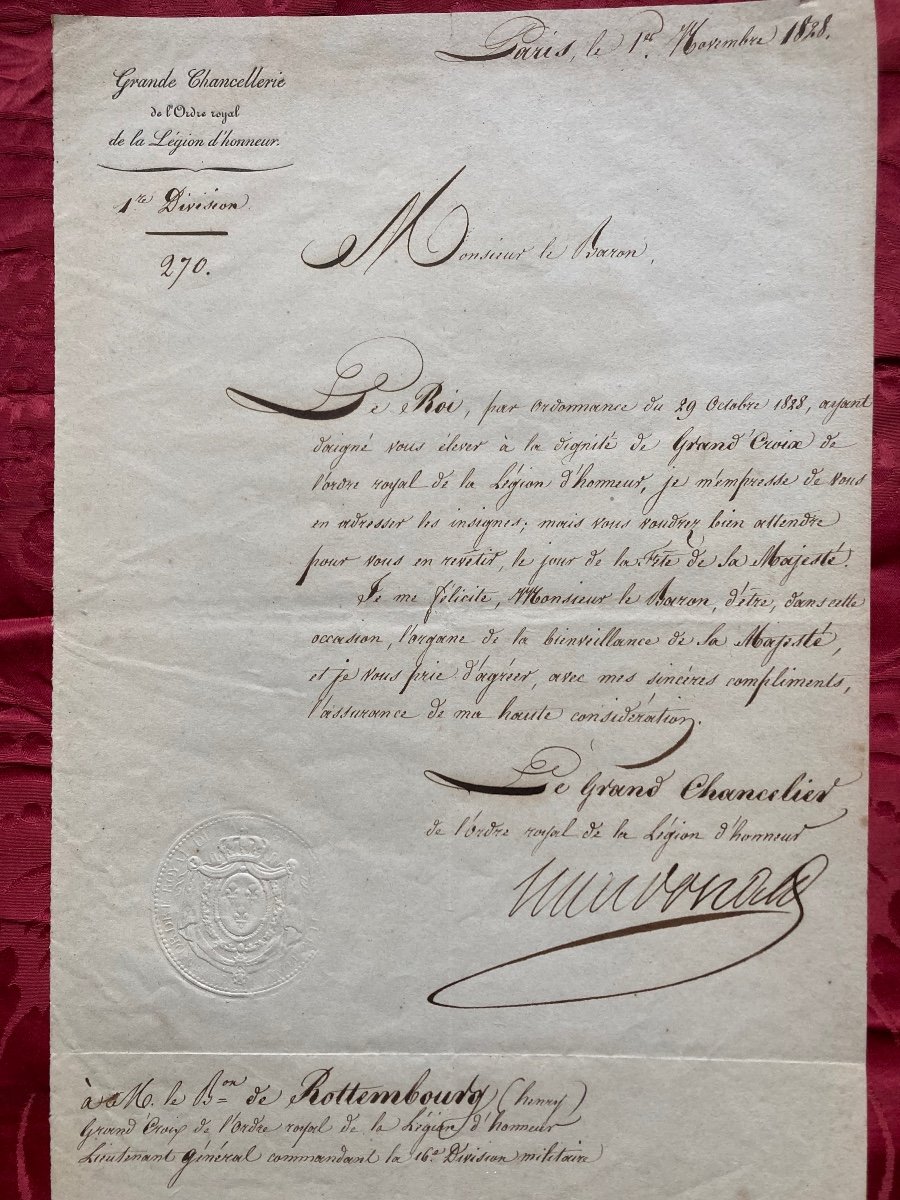 Paris, le 1er Novembre 1828.
Grande Chancellerie
de l'Ordre royal
de la Légion d'honneur.
1re Division.
270.
Monsieur le Baron,
Le Roi, par ordonnance du 29 Octobre 1828, ayant
daigné vous élever à la dignité de Grand'Croix de
l'ordre royal de la Légion d'honneur, je m'empresse de vous
en adresser les insignes; mais vous voudrez bien attendre
pour vous en revêtir, le jour de la Fête de Sa Majesté.
Je me félicite, Monsieur le Baron, d'être, dans cette
occasion, l'organe de la bienveillance de Sa Majesté,
et je vous prie d'agréer, avec mes sincères compliments,
l'assurance de ma haute considération.
Le Grand Chancelier
de l'Ordre royal de la Légion d'honneur
Macdonald
à M. le Bon de Rottembourg (henry)
Grand'Croix de l'Ordre royal de la Légion d'honneur
Lieutenant Général commandant la 16e Division militaire